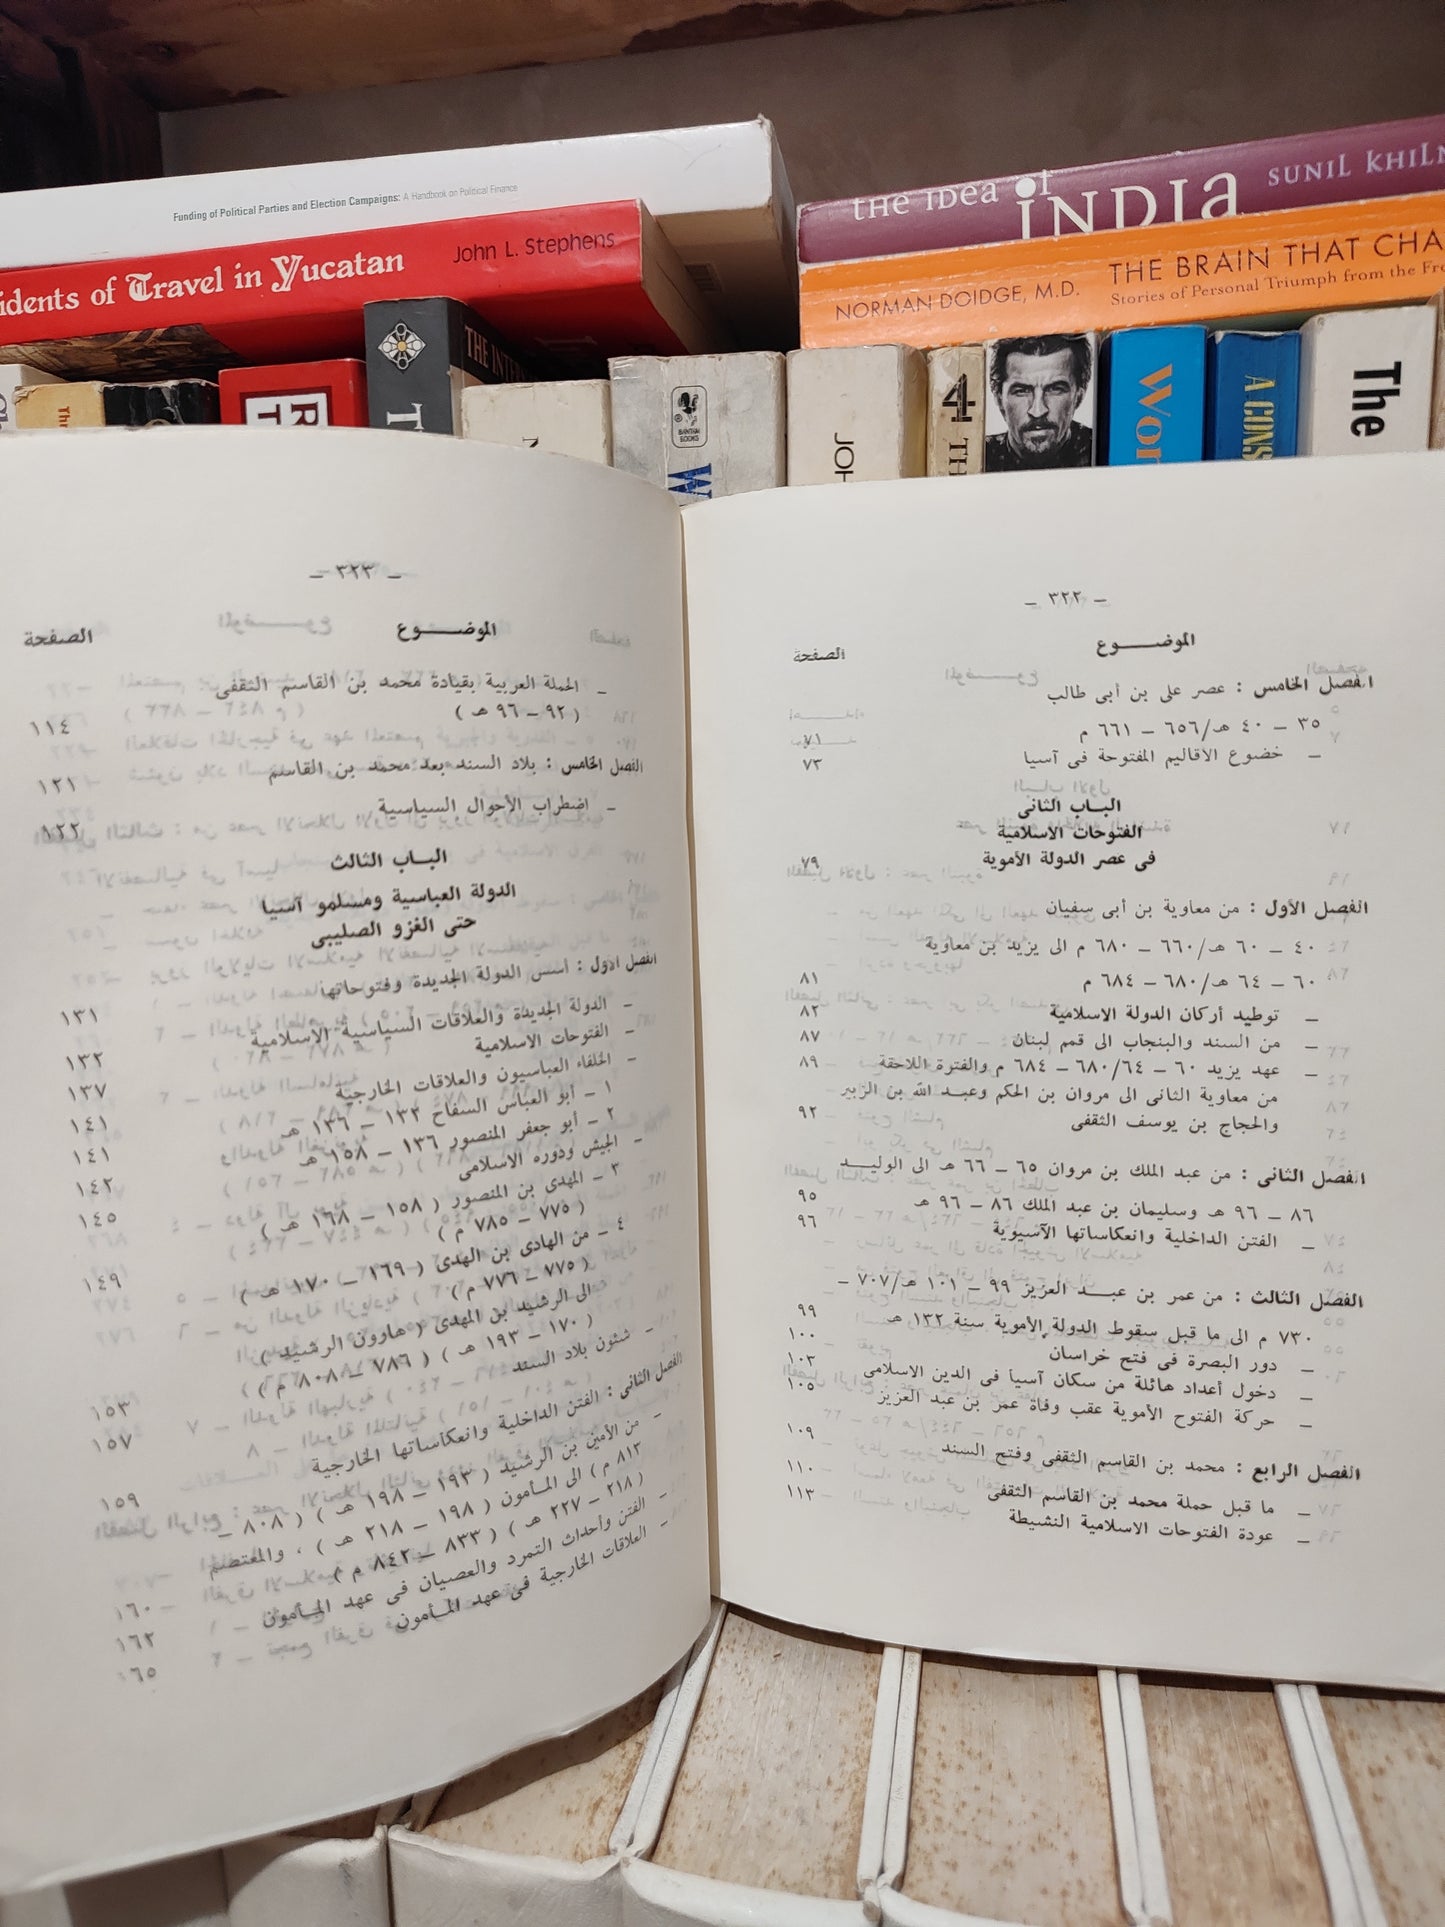 Funding of Political Parties and Election Campaigns: A Handbook on Political Finance
idents of Travel in Yucatan
John L. Stephens
THE IDEA of INDIA
SUNIL KHILN
NORMAN DOIDGE, M.D.
THE BRAIN THAT CHA
Stories of Personal Triumph from the Fro
THE INTER
BANTAM BOOKS
W
JOH
4 TH
Wor
A CONS
The
– ٣٢٢ –
الموضـــــوع
الصفحة
الفصل الخامس : عصر على بن أبى طالب
٣٥ – ٤٠ هـ/٦٥٦ – ٦٦١ م
٧١
– خضوع الاقاليم المفتوحة فى آسيا
٧٣
البـاب الثانى
الفتوحات الاسلامية
فى عصر الدولة الأموية
٧٩
الفصل الأول : من معاوية بن أبى سفيان
٤٠ – ٦٠ هـ/٦٦٠ – ٦٨٠ م الى يزيد بن معاوية
٦٠ – ٦٤ هـ/٦٨٠ – ٦٨٤ م
٨١
– توطيد أركان الدولة الاسلامية
٨٢
– من السند والبنجاب الى قمم لبنان
٨٧
– عهد يزيد ٦٠ – ٦٨٠/٦٤ – ٦٨٤ م والفترة اللاحقة
٨٩
من معاوية الثانى الى مروان بن الحكم وعبـد الله بن الزبير
والحجاج بن يوسف الثقفى
٩٢
الفصل الثانى : من عبد الملك بن مروان ٦٥ – ٦٦ هـ الى الوليـد
٨٦ – ٩٦ هـ وسليمان بن عبد الملك ٨٦ – ٩٦ هـ
٩٥
– الفتن الداخلية وانعكاساتها الآسيوية
٩٦
الفصل الثالث : من عمر بن عبـد العزيز ٩٩ – ١٠١ هـ/٧٠٧ –
٧٣٠ م الى ما قبل سقوط الدولة الأموية سنة ١٣٢ هـ
٩٩
– دور البصرة فى فتح خراسان
١٠٠
– دخول أعداد هائلة من سكان آسيا فى الدين الاسلامى
١٠٣
– حركة الفتوح الأموية عقب وفاة عمر بن عبد العزيز
١٠٥
الفصل الرابع : محمد بن القاسم الثقفى وفتح السند
١٠٩
– ما قبل حملة محمد بن القاسم الثقفى
١١٠
– عودة الفتوحات الاسلامية النشيطة
١١٣
– ٣٢٣ –
الموضـــــوع
الصفحة
– الحملة العربية بقيادة محمد بن القاسم الثقفى
( ٩٢ – ٩٦ هـ )
١١٤
الفصل الخامس : بلاد السند بعد محمد بن القاسم
١٢١
– اضطراب الأحوال السياسية
١٢٢
البـاب الثالث
الدولة العباسية ومسلمو آسيا
حتى الغزو الصليبى
الفصل الأول : أسس الدولة الجديدة وفتوحاتها
١٣١
– الدولة الجديدة والعلاقات السياسية الإسلامية
١٣٢
– الفتوحات الاسلامية
١٣٧
– الخلفاء العباسيون والعلاقات الخارجية
١٤١
١ – أبو العباس السفاح ١٣٢ – ١٣٦ هـ
١٤١
٢ – أبو جعفر المنصور ١٣٦ – ١٥٨ هـ
١٤٢
– الجيش ودوره الاسلامى
١٤٥
٣ – المهدى بن المنصور ( ١٥٨ – ١٦٨ هـ )
( ٧٧٥ – ٧٨٥ م )
١٤٩
٤ – من الهادى بن الهدى ( ١٦٩ – ١٧٠ هـ )
( ٧٧٥ – ٧٧٦ م )
الى الرشيد بن المهدى ( هارون الرشيد )
( ١٧٠ – ١٩٣ هـ ) ( ٧٨٦ – ٨٠٨ م )
١٥٣
– شئون بلاد السند
١٥٧
الفصل الثانى : الفتن الداخلية وانعكاساتها الخارجية
١٥٩
– من الأمين بن الرشيد ( ١٩٣ – ١٩٨ هـ ) ( ٨٠٨ –
٨١٣ م ) الى المـأمون ( ١٩٨ – ٢١٨ هـ ) ، والمعتصم
( ٢١٨ – ٢٢٧ هـ ) ( ٨٣٣ – ٨٤٢ م )
١٦٠
– الفتن وأحداث التمرد والعصيان فى عهد المـأمون
١٦٢
– العلاقات الخارجية فى عهد المـأمون
٦٥